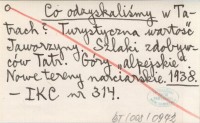 Co odzyskaliśmy w Ta-
trach? Turystyczna wartość
Jaworzyny. Szlaki zdobyw-
ców Tatr. Góry „alpejskie".
Nowe tereny narciarskie. 1938.
– IKC nr 314.